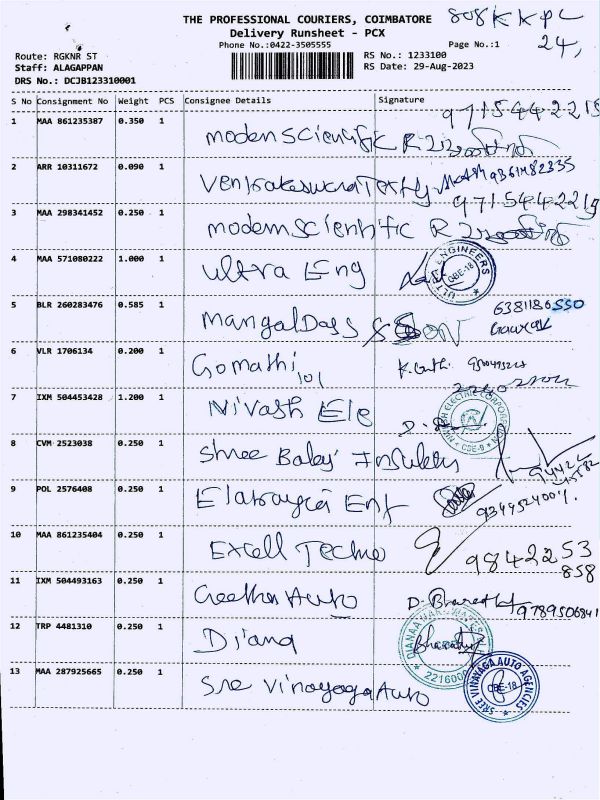 THE PROFESSIONAL COURIERS, COIMBATORE
Delivery Runsheet - PCX
Phone No.:0422-3505555
Page No.:1
24,
Route: RGKNR ST
RS No.: 1233100
Staff: ALAGAPPAN
RS Date: 29-Aug-2023
DRS No.: DCJB123310001
S No Consignment No Weight PCS Consignee Details Signature
1 MAA 861235387 0.350 1 modern scientific 9715442219
2 ARR 10311672 0.090 1
3 MAA 298341452 0.250 1 modern scientific 9715442219
4 MAA 571080222 1.000 1 Ultra Eng
5 BLR 260283476 0.585 1 Mangal Dass & SON
6 VLR 1706134 0.200 1 Gomathi 101
7 IXM 504453428 1.200 1 Nivash Ele
8 CVM 2523038 0.250 1 Shree Balaji
9 POL 2576408 0.250 1 Ent
10 MAA 861235404 0.250 1 Excell Techno 9842253
858
11 IXM 504493163 0.250 1 Geetha Auto 9789506841
12 TRP 4481310 0.250 1 Diana
13 MAA 287925665 0.250 1 Sre Vinayaga Auto SREE VINAYAGA AUTO AGENCIES CBE-18